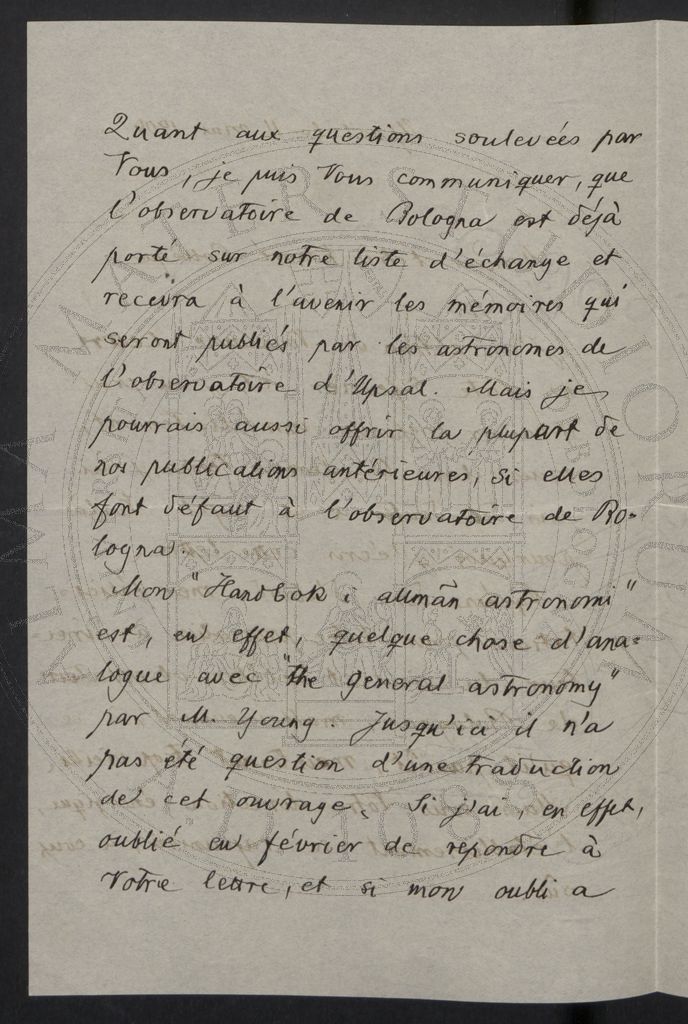 Quant aux questions soulevées par
Vous, je puis Vous communiquer, que
l'observatoire de Bologna est déjà
porté sur notre liste d'échange et
recevra à l'avenir les mémoires qui
seront publiés par les astronomes de
l'observatoire d'Upsal. Mais je
pourrais aussi offrir la plupart de
nos publications antérieures, si elles
font défaut à l'observatoire de Bo-
logna.
Mon "Handbok i allmän astronomi"
est, en effet, quelque chose d'ana-
logue avec "the general astronomy"
par M. Young. Jusqu'ici il n'a
pas été question d'une traduction
de cet ouvrage. Si j'ai, en effet,
oublié en février de repondre à
Votre lettre, et si mon oubli a
ALMA MATER STUDIORUM